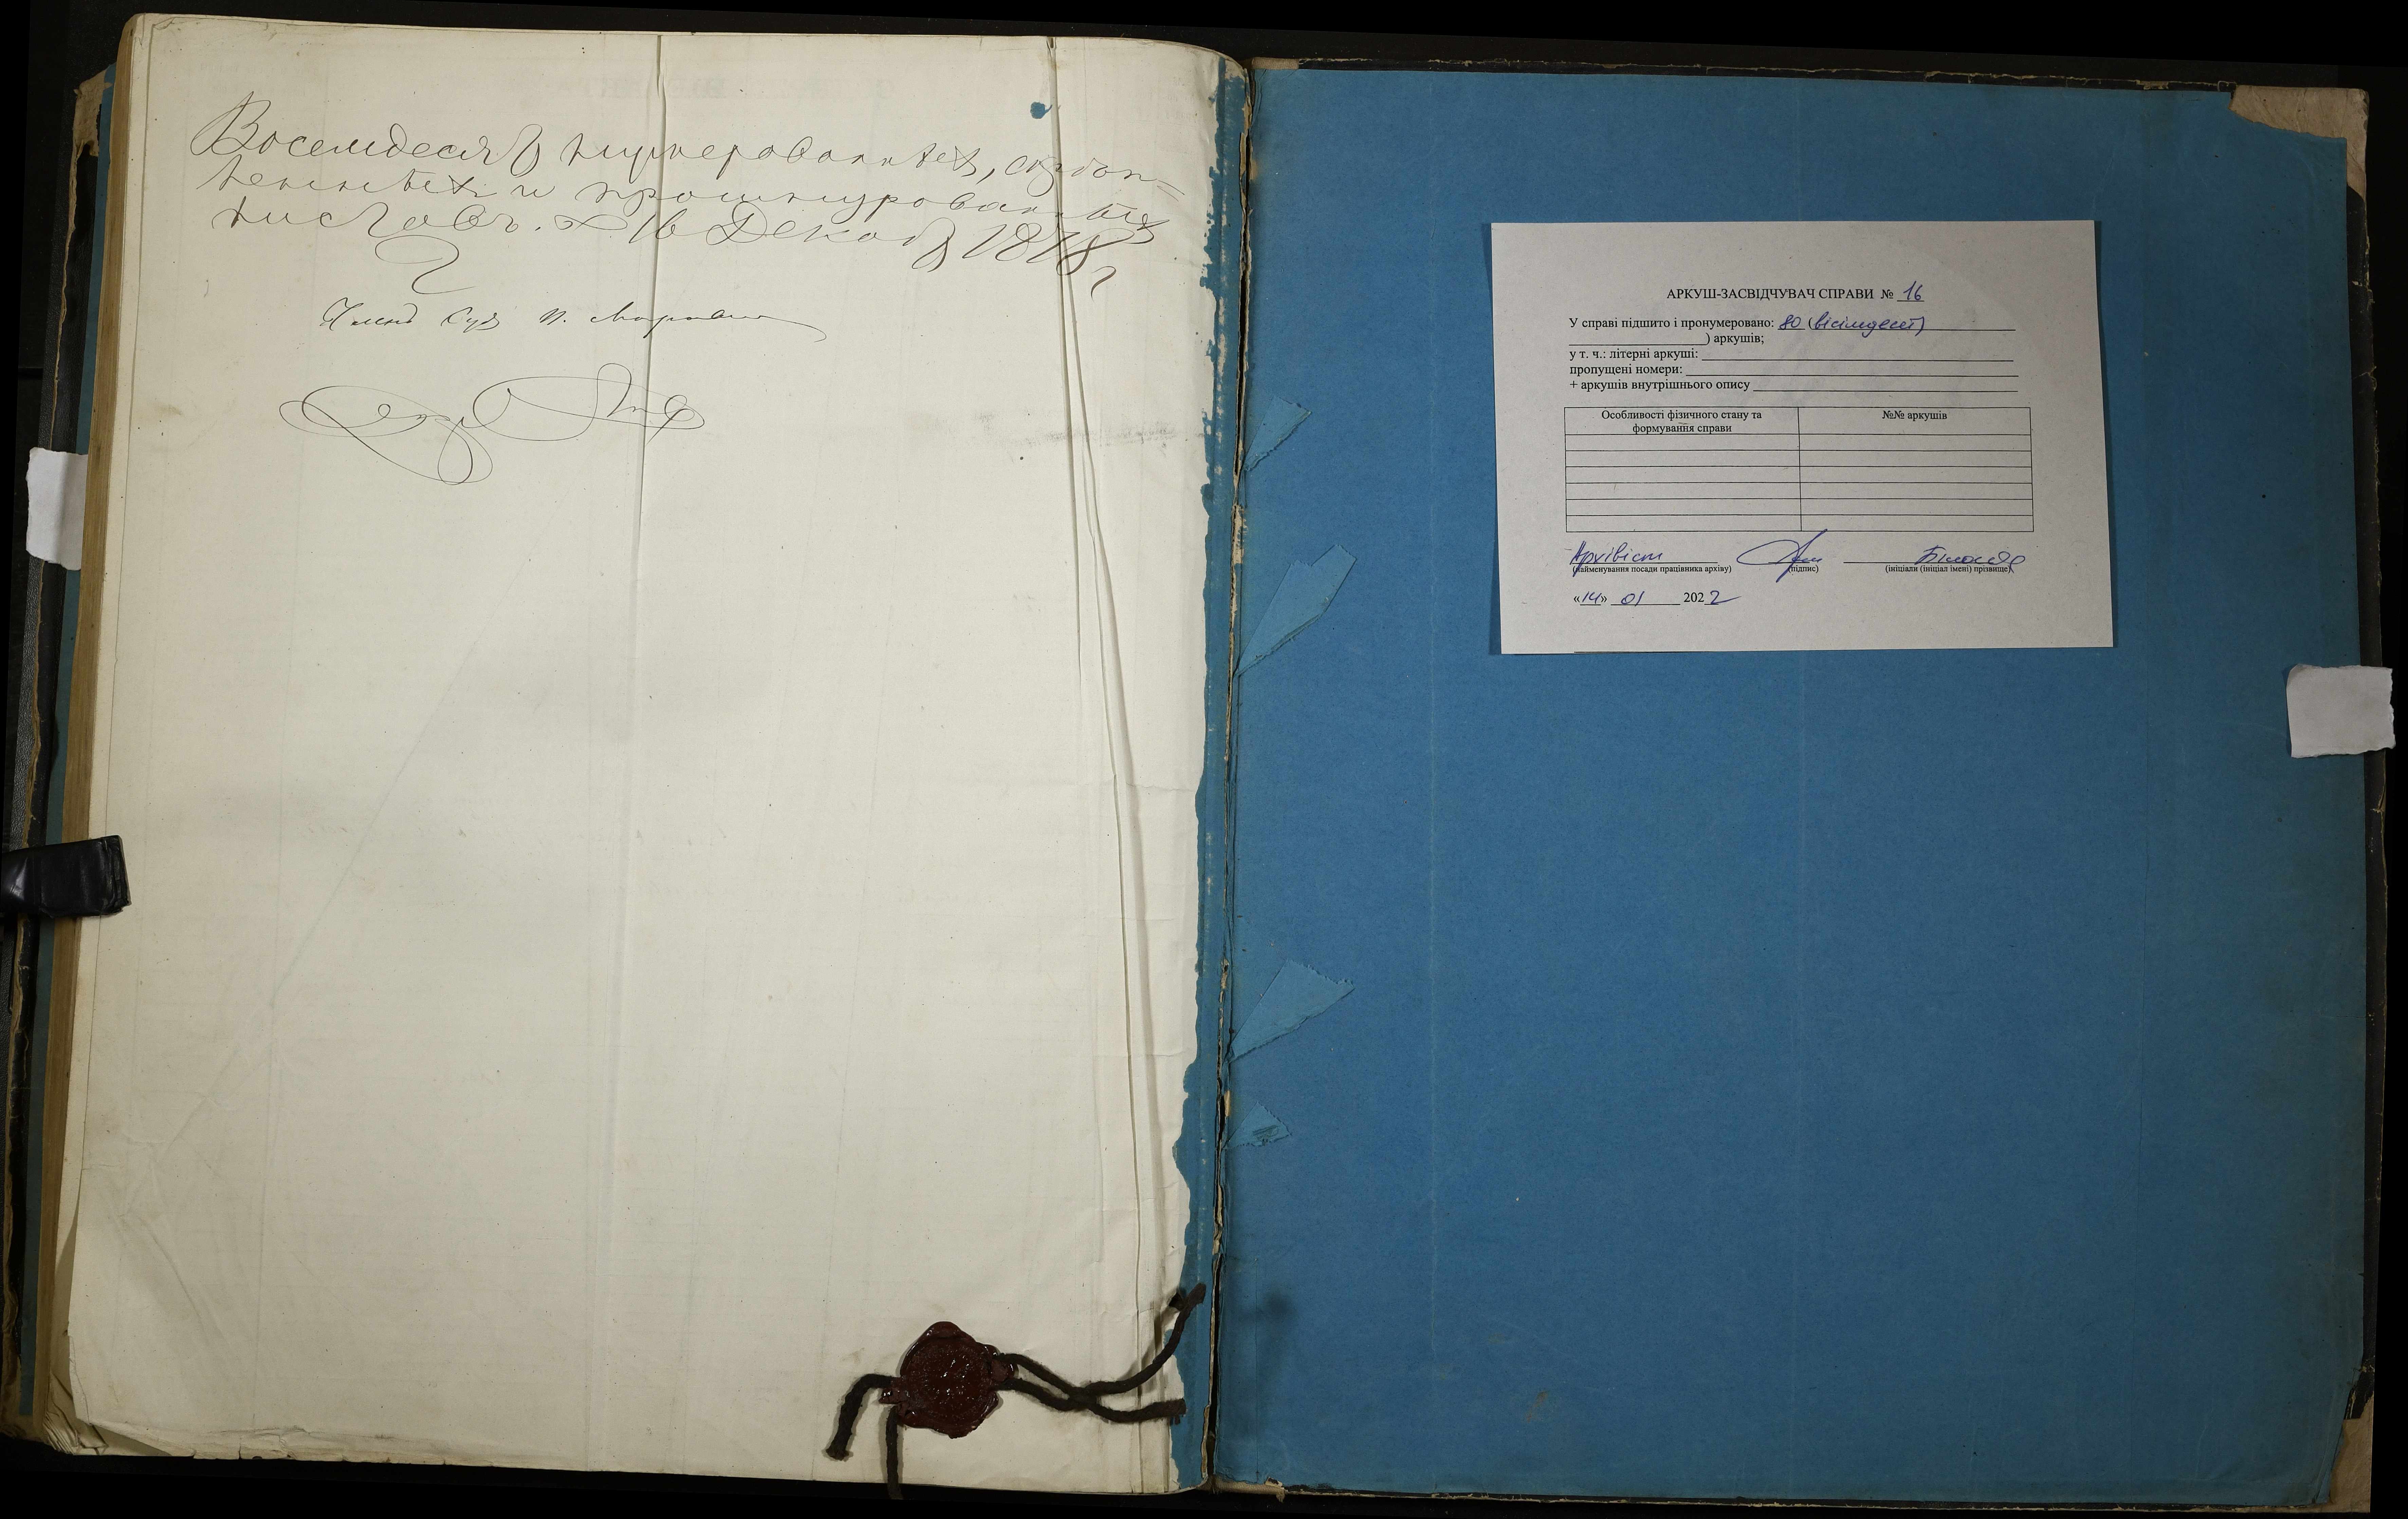 Восемдесятъ нумерованныхъ, скрѣп=
ленныхъ и прошнурованныхъ
листовъ. 16 Декаб 1878 г
Членъ Суда П.
АРКУШ-ЗАСВІДЧУВАЧ СПРАВИ № 16
У справі підшито і пронумеровано: 80 (вісімдесят)
) аркушів;
у т. ч.: літерні аркуші:
пропущені номери:
+ аркушів внутрішнього опису
Особливості фізичного стану та формування справи
№№ аркушів
Архівіст
(найменування посади працівника архіву) (підпис) (ініціали (ініціал імені) прізвище)
«14» 01 2022